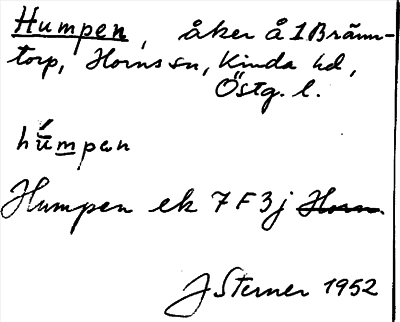 Humpen, åker å 1 Bränn-
torp, Horns sn, Kinda hd,
Östg. l.
húmpen
Humpen ek 7F3j Horn.
J Sterner 1952